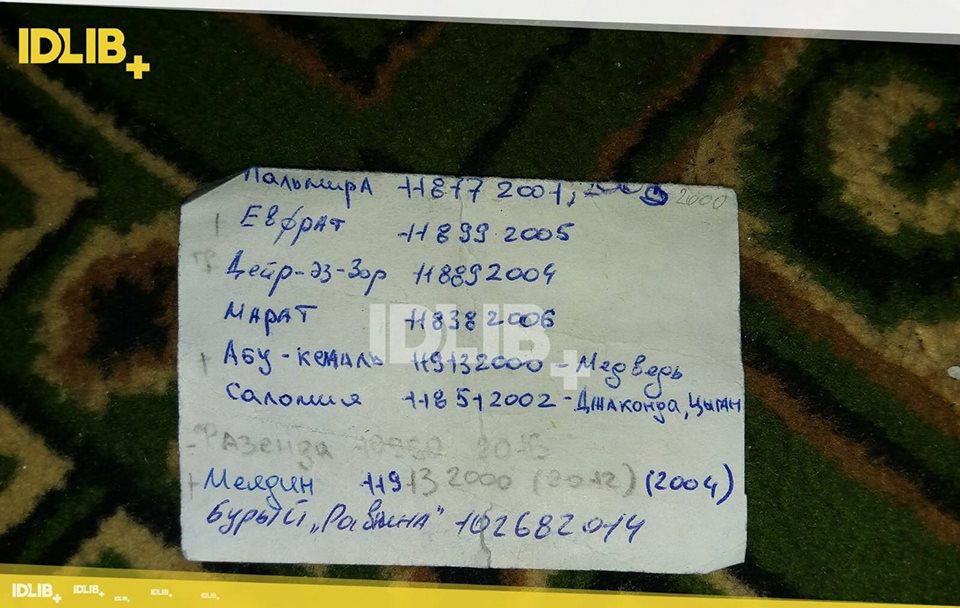 IDLIB+
Пальмира 11877 2001, 2000
+ Евфрат 11899 2005
Дейр-эз-Зор 11889 2004
Марат 11838 2006
+ Абу-кемаль 11913 2000 - Медведь
Саломия 11851 2002 - Джаконда, Цыган
- Фазенда 2013
+ Меядин 11913 2000 (2012) (2004)
Бурый „Равнина" 10268 2014
IDLIB+
IDLIB+ IDLIB+ IDLIB+ IDLIB+ IDLIB+